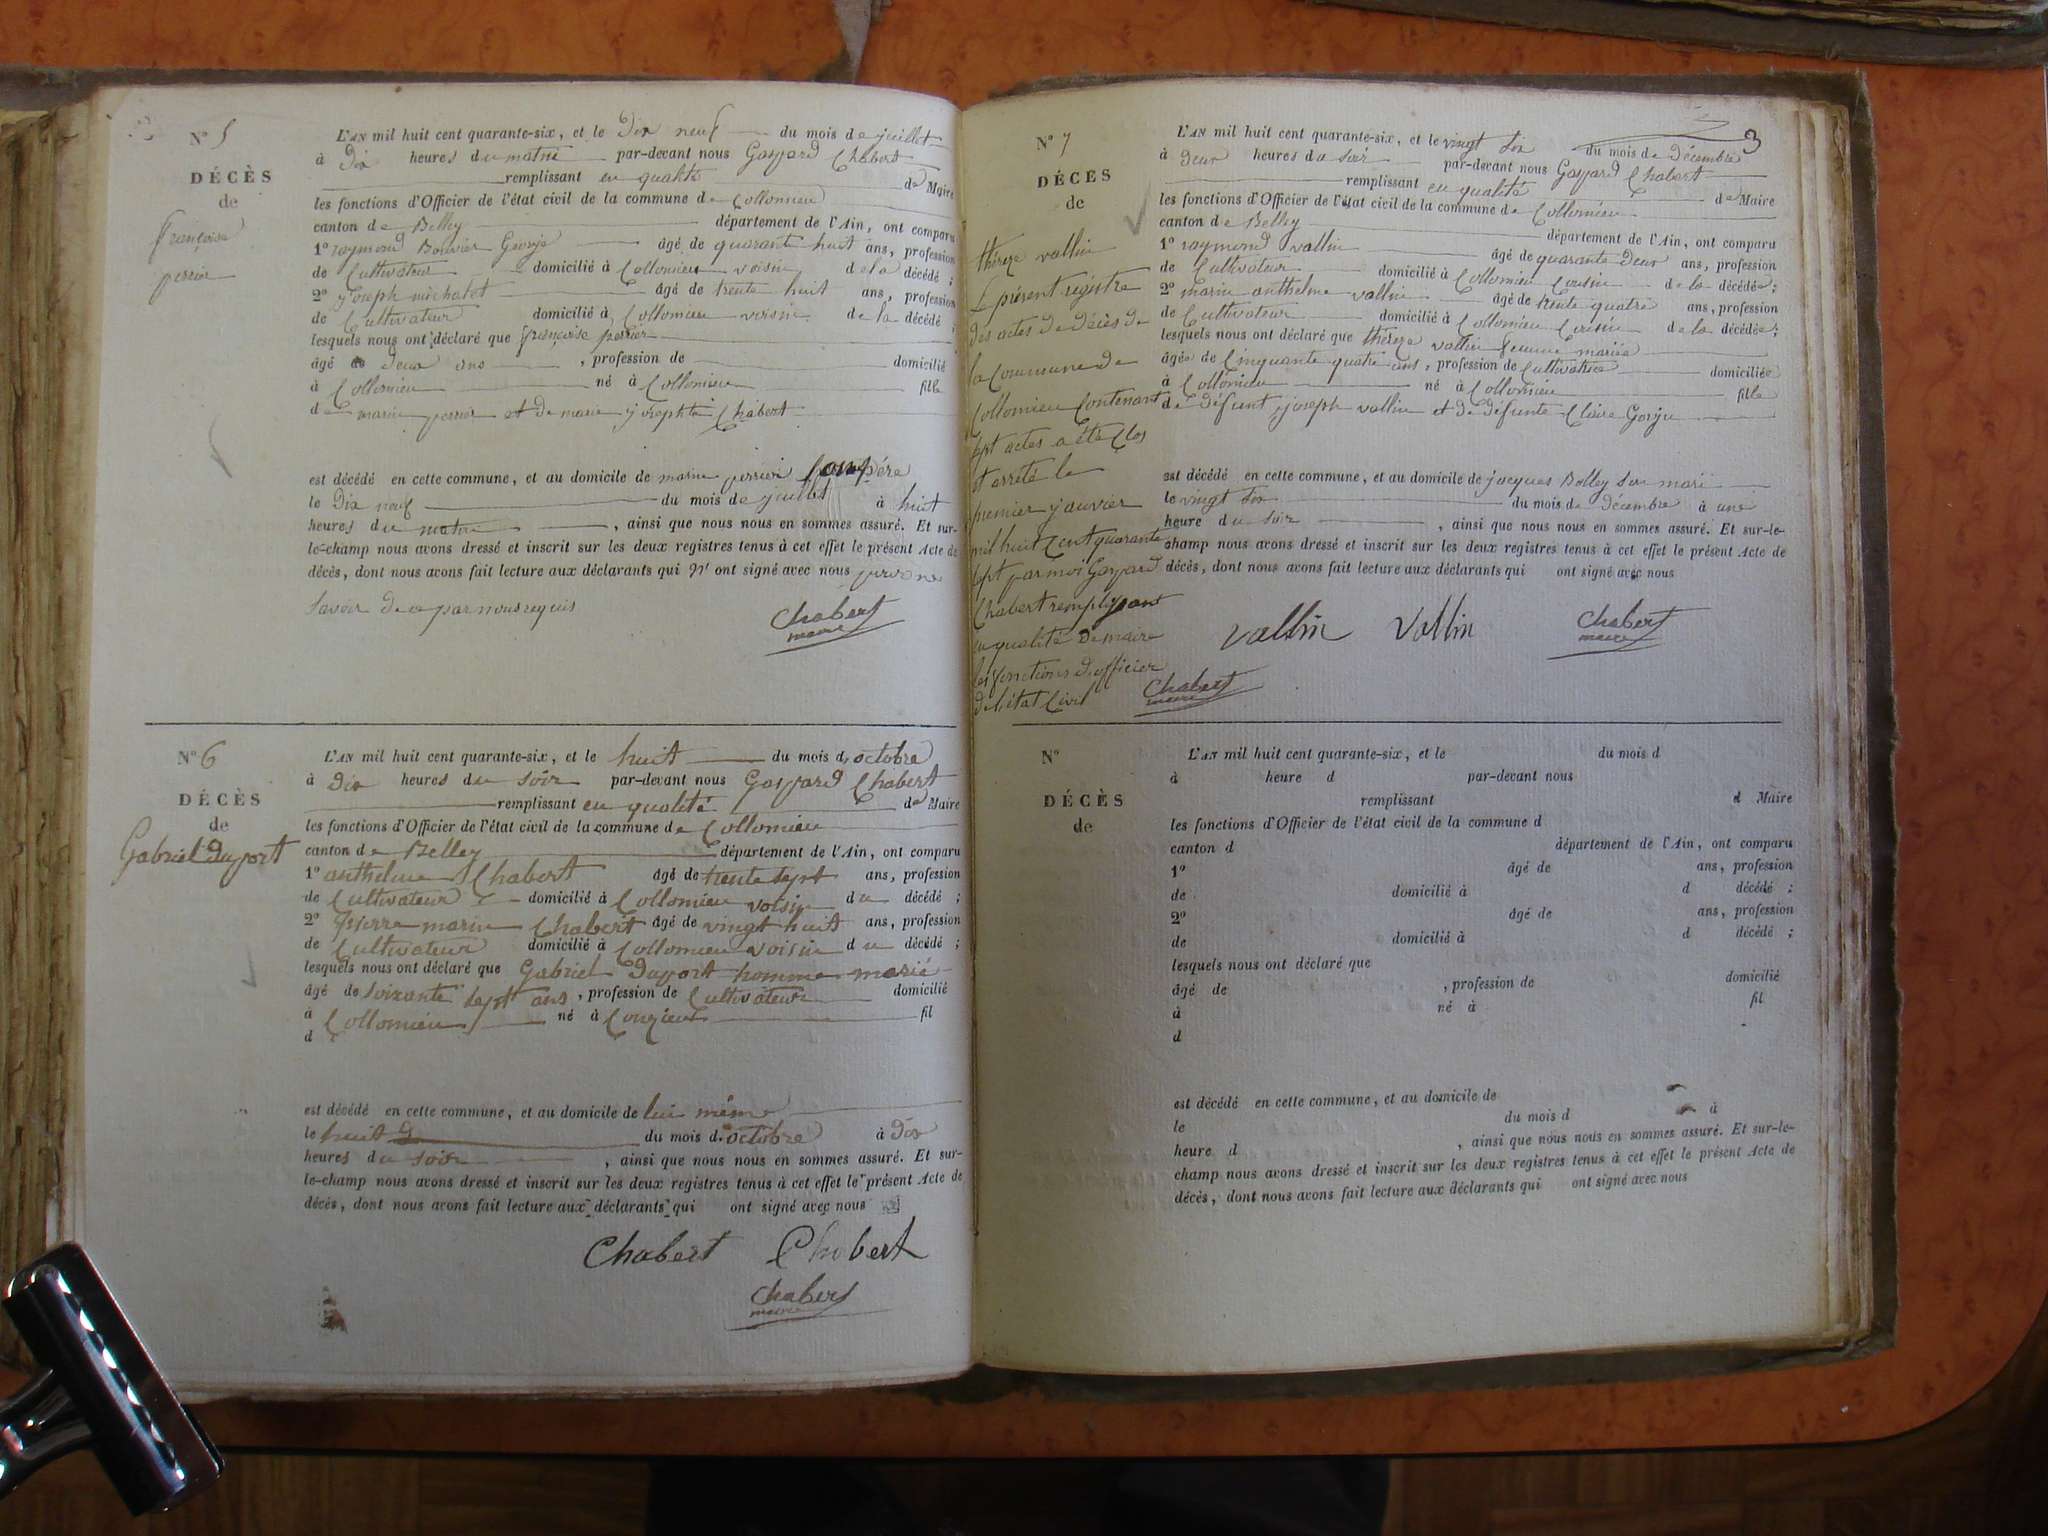 N° 5
DÉCÈS
de
françoise
perrier
L'AN mil huit cent quarante-six, et le Dix neuf du mois de juillet
à Dix heures du matin par-devant nous Gaspard Chabert
remplissant en qualité de Maire
les fonctions d'Officier de l'état civil de la commune de Collomieu
canton de Belley département de l'Ain, ont comparu
1° raymond Bouvier George âgé de quarante huit ans, profession
de Cultivateur domicilié à Collomieu voisin de la décédé ;
2° joseph michalet âgé de trente huit ans, profession
de Cultivateur domicilié à Collomieu voisin de la décédé ;
lesquels nous ont déclaré que françoise perrier
âgé de deux ans , profession de domicilié
à Collomieu né à Collomieu fille
de marin perrier et de marie josephte Chabert
est décédé en cette commune, et au domicile de marin perrier son père
le Dix neuf du mois de juillet à huit
heures du matin , ainsi que nous nous en sommes assuré. Et sur-
le-champ nous avons dressé et inscrit sur les deux registres tenus à cet effet le présent Acte de
décès, dont nous avons fait lecture aux déclarants qui n' ont signé avec nous
savoir de ce par nous requis
Chabert
maire
N° 6
DÉCÈS
de
Gabriel Duport
L'AN mil huit cent quarante-six, et le huit du mois d octobre
à Dix heures du soir par-devant nous Gaspard Chabert
remplissant en qualité de Maire
les fonctions d'Officier de l'état civil de la commune de Collomieu
canton de Belley département de l'Ain, ont comparu
1° anthelme Chabert âgé de trente sept ans, profession
de Cultivateur domicilié à Collomieu voisin du décédé ;
2° pierre marin Chabert âgé de vingt huit ans, profession
de Cultivateur domicilié à Collomieu voisin du décédé ;
lesquels nous ont déclaré que Gabriel Duport homme marié
âgé de soixante sept ans , profession de Cultivateur domicilié
à Collomieu né à Conzieu fil
d
est décédé en cette commune, et au domicile de lui même
le huit du mois d octobre à Dix
heures du soir , ainsi que nous nous en sommes assuré. Et sur-
le-champ nous avons dressé et inscrit sur les deux registres tenus à cet effet le présent Acte de
décès, dont nous avons fait lecture aux déclarants qui ont signé avec nous
Chabert Chabert
Chabert
maire
3
N° 7
DÉCÈS
de
thérèze vallin
Le présent régistre
des actes de décès de
la Commune de
Collomieu Contenant
sept actes a été Clos
et arrêté le
premier janvier
mil huit Cent quarante
sept par moi Gaspard
Chabert remplissant
en qualité de maire
les fonctions d'officier
de l'état Civil
Chabert
maire
L'AN mil huit cent quarante-six, et le vingt six du mois de Décembre
à deux heures du soir par-devant nous Gaspard Chabert
remplissant en qualité de Maire
les fonctions d'Officier de l'état civil de la commune de Collomieu
canton de Belley département de l'Ain, ont comparu
1° raymond vallin âgé de quarante deux ans, profession
de Cultivateur domicilié à Collomieu Cousin de la décédée ;
2° marin anthelme vallin âgé de trente quatre ans, profession
de Cultivateur domicilié à Collomieu Cousin de la décédée ;
lesquels nous ont déclaré que thérèze vallin femme mariée
âgée de Cinquante quatre ans , profession de Cultivatrice domiciliée
à Collomieu né à Collomieu fille
de défunt joseph vallin et de défunte Claire Gorju
est décédé en cette commune, et au domicile de jacques Bolley son mari
le vingt six du mois de décembre à une
heure du soir , ainsi que nous nous en sommes assuré. Et sur-le-
champ nous avons dressé et inscrit sur les deux registres tenus à cet effet le présent Acte de
décès, dont nous avons fait lecture aux déclarants qui ont signé avec nous
Vallin Vallin Chabert
maire
N°
DÉCÈS
de
L'AN mil huit cent quarante-six, et le du mois d
à heure d par-devant nous
remplissant d Maire
les fonctions d'Officier de l'état civil de la commune d
canton d département de l'Ain, ont comparu
1° âgé de ans, profession
de domicilié à d décédé ;
2° âgé de ans, profession
de domicilié à d décédé ;
lesquels nous ont déclaré que
âgé de , profession de domicilié
à né à fil
d
est décédé en cette commune, et au domicile de
le du mois d à
heure d , ainsi que nous nous en sommes assuré. Et sur-le-
champ nous avons dressé et inscrit sur les deux registres tenus à cet effet le présent Acte de
décès, dont nous avons fait lecture aux déclarants qui ont signé avec nous